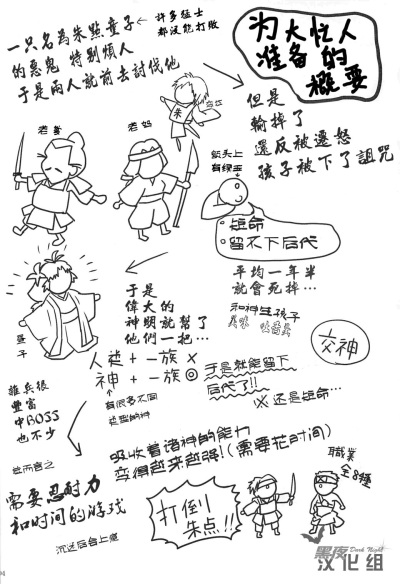 为大忙人
准备的
概要
一只名為朱點童子
的惡鬼 特別煩人
于是兩人就前去討伐他
←許多猛士
都沒能打敗
朱
老爹
老媽
額头上
有绿玉
但是
輸掉了
還反被遷怒
孩子被下了詛咒
短命
留不下后代
平均一年半
就會死掉…
于是
偉大的
神明就幫了
他們一把…
和神生孩子
交神
人类 + 一族 ×
神 + 一族 ◎
有很多不同
类型的神
于是就能留下
后代了!!
※还是短命…
雜兵很
豐富
中BOSS
也不少
吸收着诸神的能力
变得越来越强!(需要花时间)
总而言之
需要忍耐力
和时间的游戏
沉迷后会上瘾
打倒
朱点!!
職業
全8種
黑夜
Dark Night
汉化组